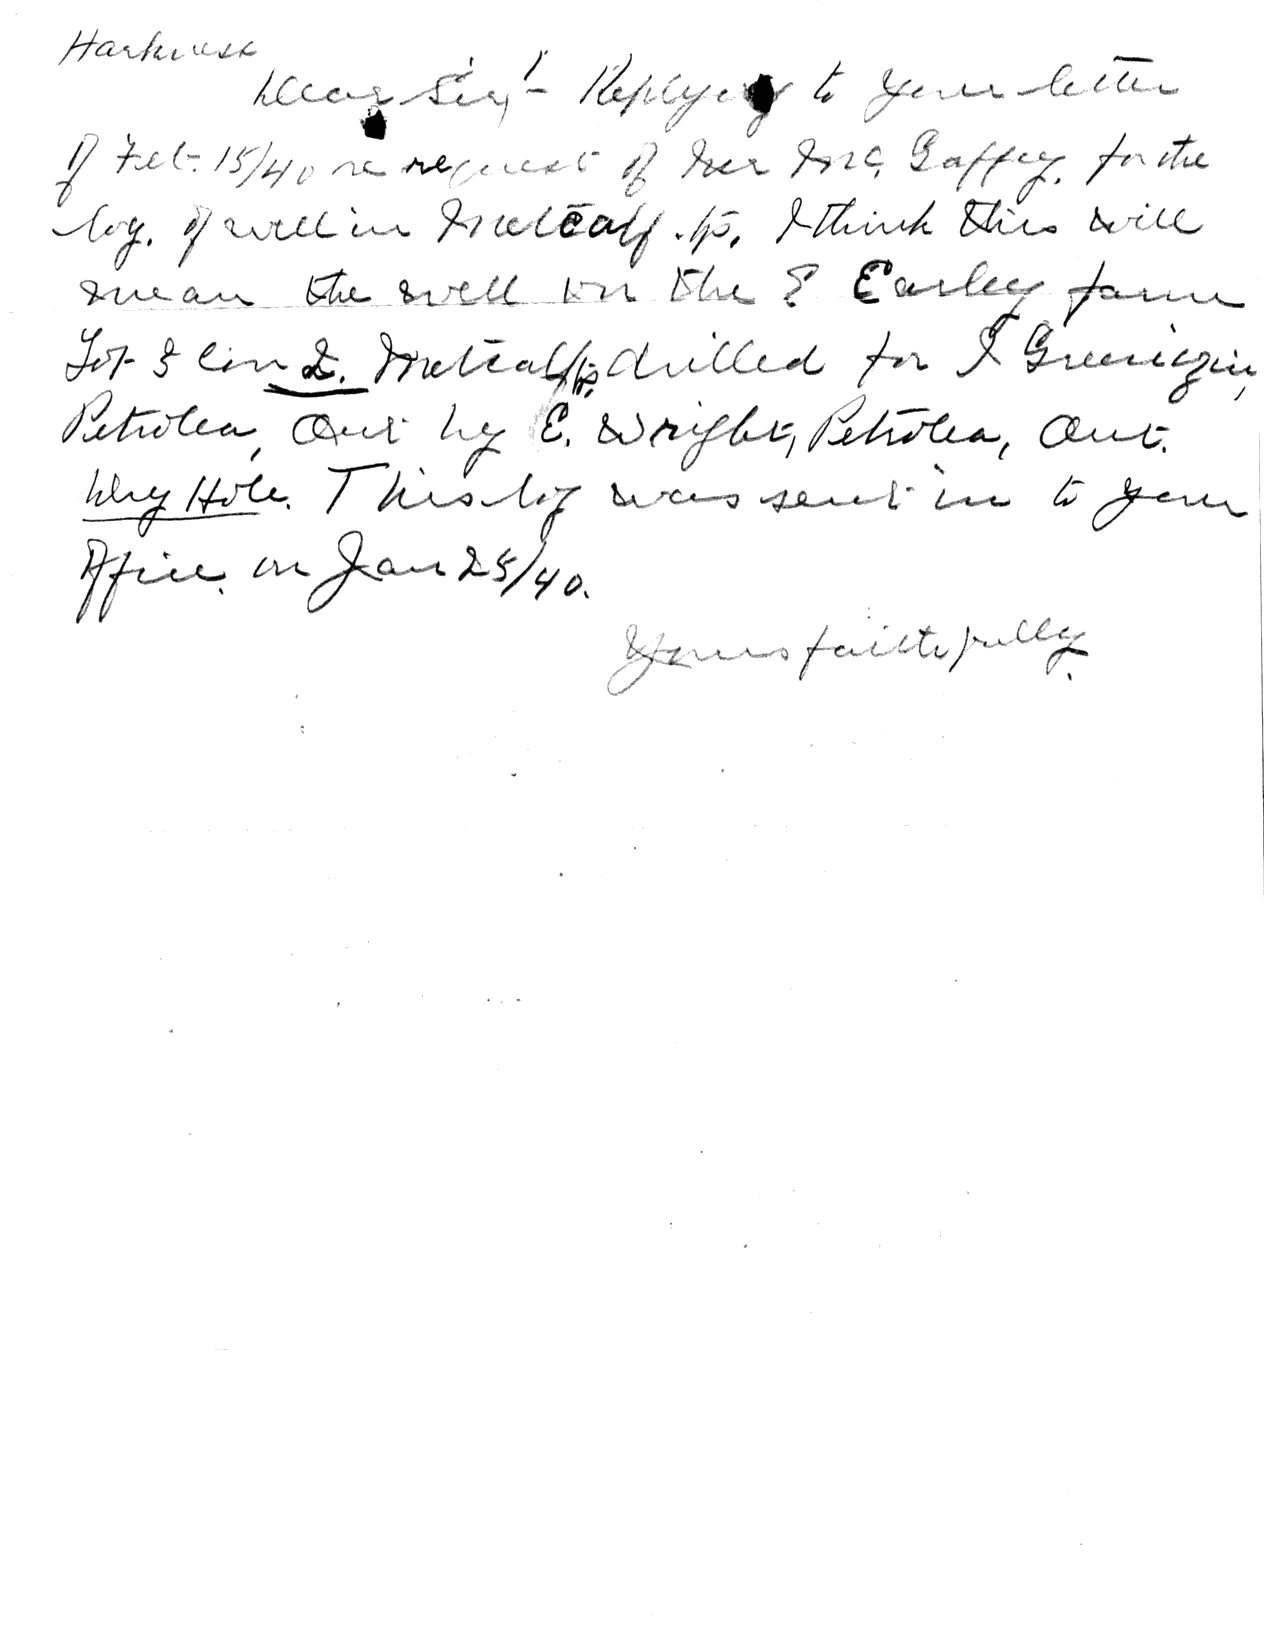 Harkness
Dear Sir,- Replying to your letter
of Feb. 15/40 re request of Mr Mc. Gaffey. for the
log. of well in Metcalf tp. I think this will
mean the well on the ? Earley farm
Lot 3 Con 2. Metcalf tp. drilled for
Petrolea, Ont by E. Wright, Petrolea, Ont.
Dry Hole. This log was sent in to your
Office. on Jan 25/40.
Yours faithfully.